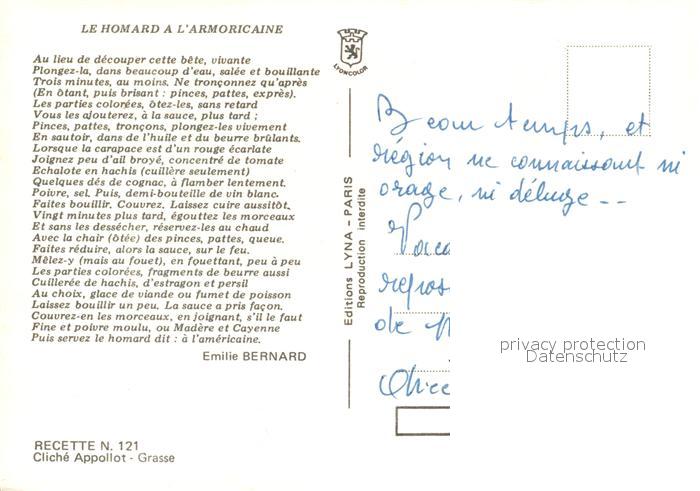 LE HOMARD A L'ARMORICAINE
Au lieu de découper cette bête, vivante
Plongez-la, dans beaucoup d'eau, salée et bouillante
Trois minutes, au moins. Ne tronçonnez qu'après
(En ôtant, puis brisant : pinces, pattes, exprès).
Les parties colorées, ôtez-les, sans retard
Vous les ajouterez, à la sauce, plus tard ;
Pinces, pattes, tronçons, plongez-les vivement
En sautoir, dans de l'huile et du beurre brûlants.
Lorsque la carapace est d'un rouge écarlate
Joignez peu d'ail broyé, concentré de tomate
Echalote en hachis (cuillère seulement)
Quelques dés de cognac, à flamber lentement.
Poivre, sel. Puis, demi-bouteille de vin blanc.
Faites bouillir. Couvrez. Laissez cuire aussitôt.
Vingt minutes plus tard, égouttez les morceaux
Et sans les dessécher, réservez-les au chaud
Avec la chair (ôtée) des pinces, pattes, queue.
Faites réduire, alors la sauce, sur le feu.
Mêlez-y (mais au fouet), en fouettant, peu à peu
Les parties colorées, fragments de beurre aussi
Cuillerée de hachis, d'estragon et persil
Au choix, glace de viande ou fumet de poisson
Laissez bouillir un peu. La sauce a pris façon.
Couvrez-en les morceaux, en joignant, s'il le faut
Fine et poivre moulu, ou Madère et Cayenne
Puis servez le homard dit : à l'américaine.
Emilie BERNARD
RECETTE N. 121
Cliché Appollot - Grasse
LYONCOLOR
Editions LYNA - PARIS
Reproduction interdite
Beau temps, et
région ne connaissant ni
orage, ni déluge --
de
privacy protection
Datenschutz